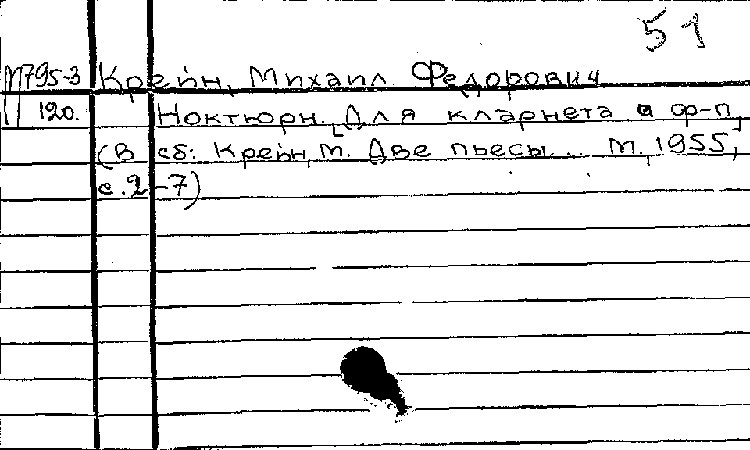 51
М795-3 Крейн, Михаил Федорович
11 120. Ноктюрн. [Для кларнета и ф-п,
(В сб: Крейн, М. Две пьесы... М, 1955,
с.2-7)